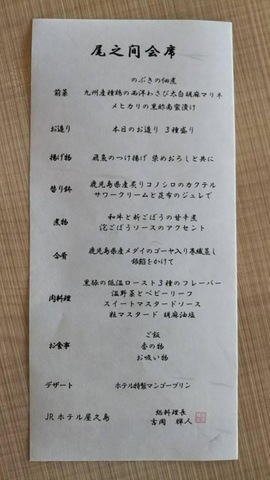 尾之間会席
のぶきの佃煮
前菜 九州産種鶏の西洋わさび太白胡麻マリネ
メヒカリの黒酢南蛮漬け
お造り 本日のお造り 3種盛り
揚げ物 飛魚のつけ揚げ 染めおろしと共に
替り鉢 鹿児島県産炙りコノシロのカクテル
サワークリームと昆布のジュレで
煮物 和牛と新ごぼうの甘辛煮
泡ごぼうソースのアクセント
合肴 鹿児島県産メダイのゴーヤ入り巻繊蒸し
銀餡をかけて
肉料理 黒豚の低温ロースト3種のフレーバー
温野菜とベビーリーフ
スイートマスタードソース
粒マスタード 胡麻油塩
お食事 ご飯
香の物
お吸い物
デザート ホテル特製マンゴープリン
JRホテル屋久島 総料理長
吉岡 輝人